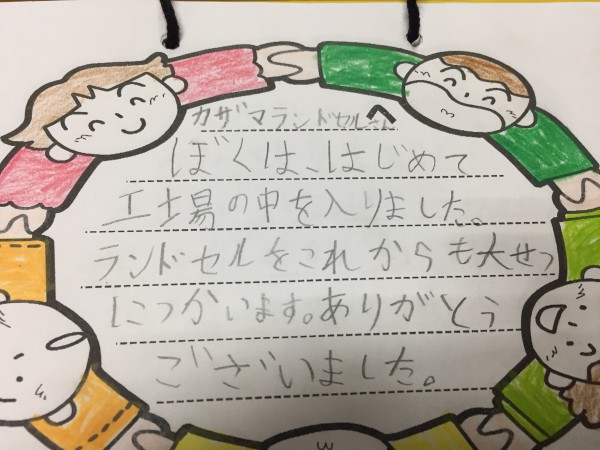 カザマランドセルさんへ
ぼくは、はじめて
工場の中を入りました。
ランドセルをこれからも大せつ
につかいます。ありがとう
ございました。